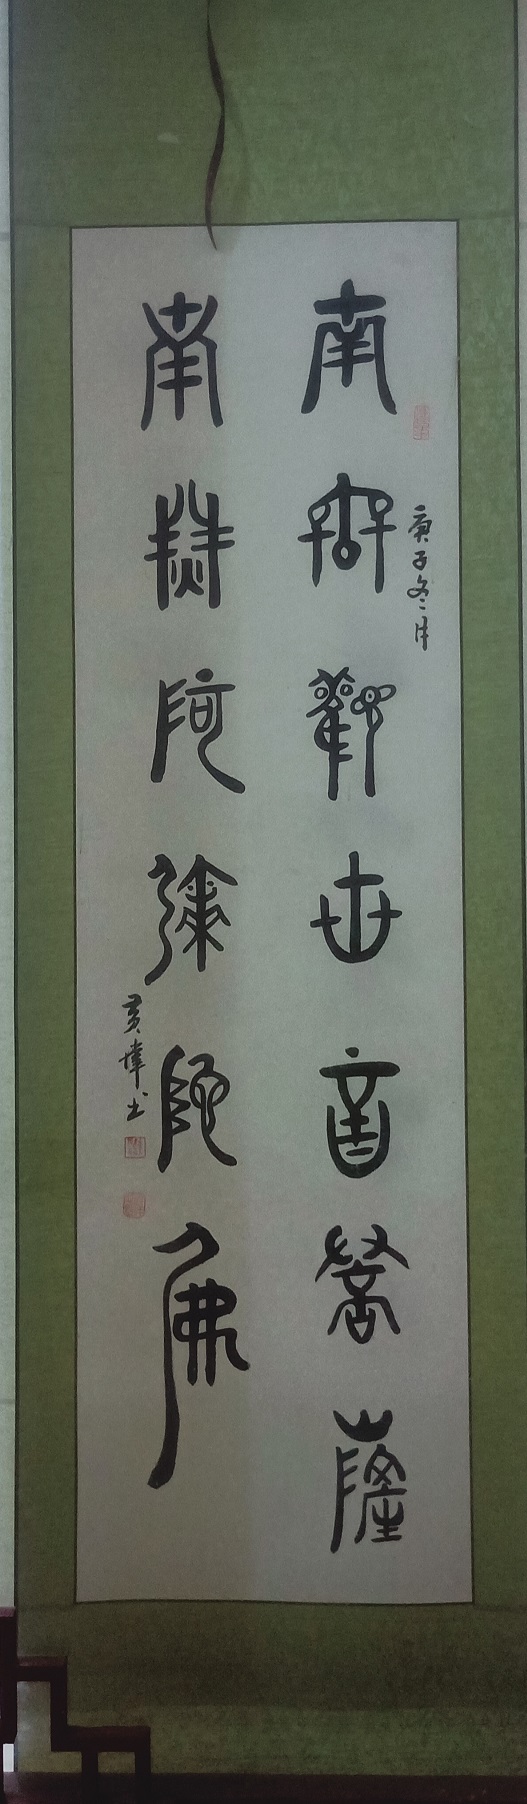 庚子冬月
南無觀世音菩薩
南無阿彌陀佛
黄书